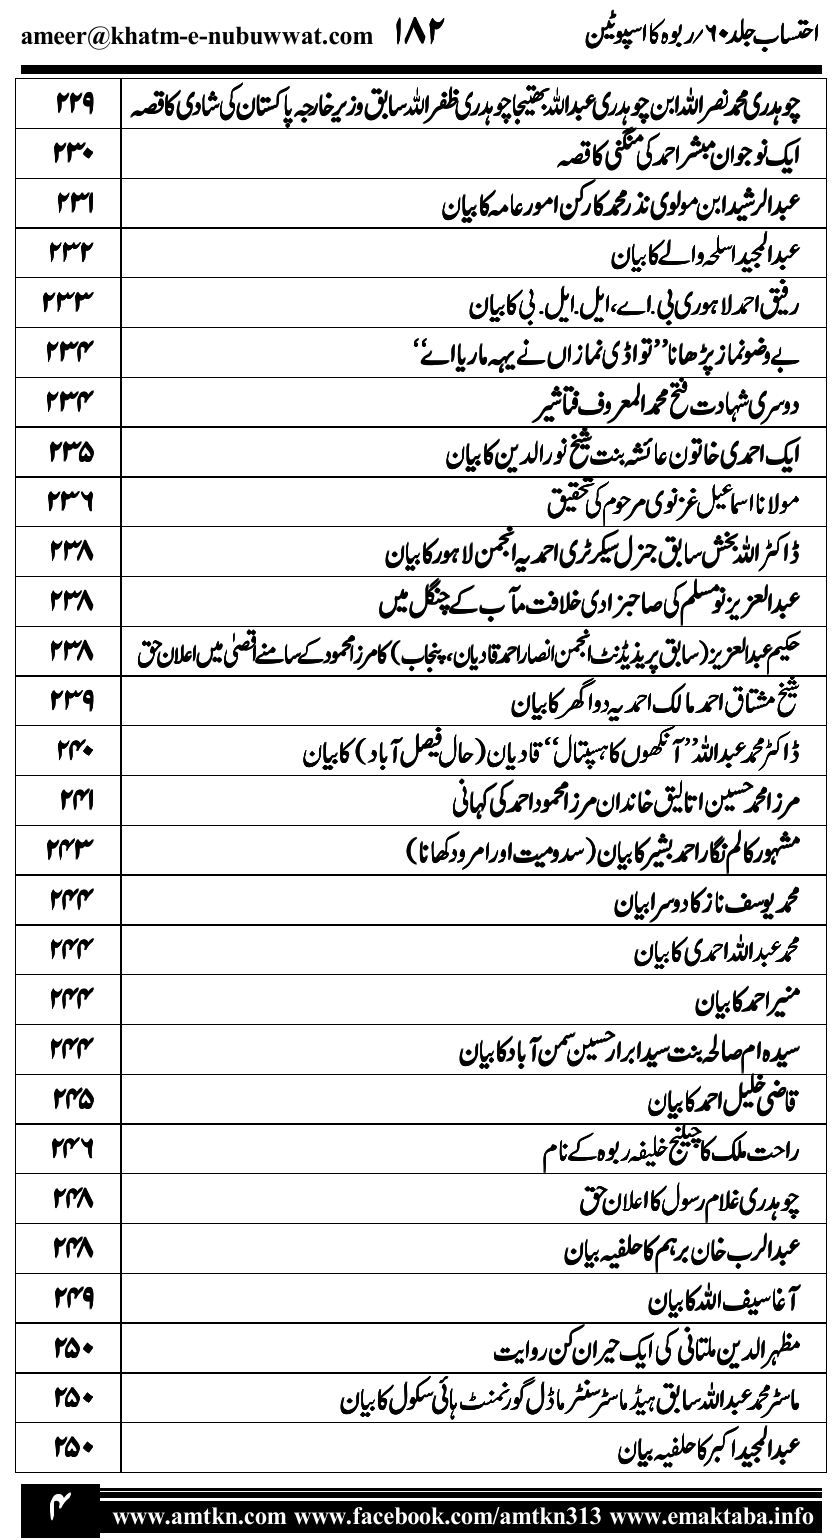 احتساب جلد ۶۰/ ربوہ کا اسپوٹین ۱۸۲ ameer@khatm-e-nubuwwat.com
چوہدری محمد نصراللہ ابن چوہدری عبداللہ بھتیجا چوہدری ظفراللہ سابق وزیر خارجہ پاکستان کی شادی کا قصہ ۲۲۹
ایک نوجوان مبشر احمد کی منگنی کا قصہ ۲۳۰
عبدالرشید ابن مولوی نذر محمد کارکن امور عامہ کا بیان ۲۳۱
عبدالمجید اسلحہ والے کا بیان ۲۳۲
رفیق احمد لاہوری بی.اے، ایل.ایل.بی کا بیان ۲۳۳
بے وضو نماز پڑھانا ”تواڈی نمازاں نے یہہ ماریا اے“ ۲۳۴
دوسری شہادت فتح محمد المعروف فتا شیر ۲۳۴
ایک احمدی خاتون عائشہ بنت شیخ نورالدین کا بیان ۲۳۵
مولانا اسماعیل غزنوی مرحوم کی تحقیق ۲۳۶
ڈاکٹر اللہ بخش سابق جنرل سیکرٹری احمدیہ انجمن لاہور کا بیان ۲۳۸
عبدالعزیز نومسلم کی صاحبزادی خلافت مآب کے چنگل میں ۲۳۸
حکیم عبدالعزیز (سابق پریذیڈنٹ انجمن انصار احمد قادیان، پنجاب) کا مرزا محمود کے سامنے اقصیٰ میں اعلان حق ۲۳۸
شیخ مشتاق احمد مالک احمدیہ دوا گھر کا بیان ۲۳۹
ڈاکٹر محمد عبداللہ ”آنکھوں کا ہسپتال“ قادیان (حال فیصل آباد) کا بیان ۲۴۰
مرزا محمد حسین اتالیق خاندان مرزا محمود احمد کی کہانی ۲۴۱
مشہور کالم نگار احمد بشیر کا بیان (سدومیت اور امرود کھانا) ۲۴۳
محمد یوسف ناز کا دوسرا بیان ۲۴۴
محمد عبداللہ احمدی کا بیان ۲۴۴
منیر احمد کا بیان ۲۴۴
سیدہ ام صالحہ بنت سید ابرار حسین سمن آباد کا بیان ۲۴۴
قاضی خلیل احمد کا بیان ۲۴۵
راحت ملک کا چیلنج خلیفہ ربوہ کے نام ۲۴۶
چوہدری غلام رسول کا اعلان حق ۲۴۸
عبدالرب خان برہم کا حلفیہ بیان ۲۴۸
آغا سیف اللہ کا بیان ۲۴۹
مظہرالدین ملتانی کی ایک حیران کن روایت ۲۵۰
ماسٹر محمد عبداللہ سابق ہیڈ ماسٹر سنٹر ماڈل گورنمنٹ ہائی سکول کا بیان ۲۵۰
عبدالمجید اکبر کا حلفیہ بیان ۲۵۰
۴ www.amtkn.com www.facebook.com/amtkn313 www.emaktaba.info